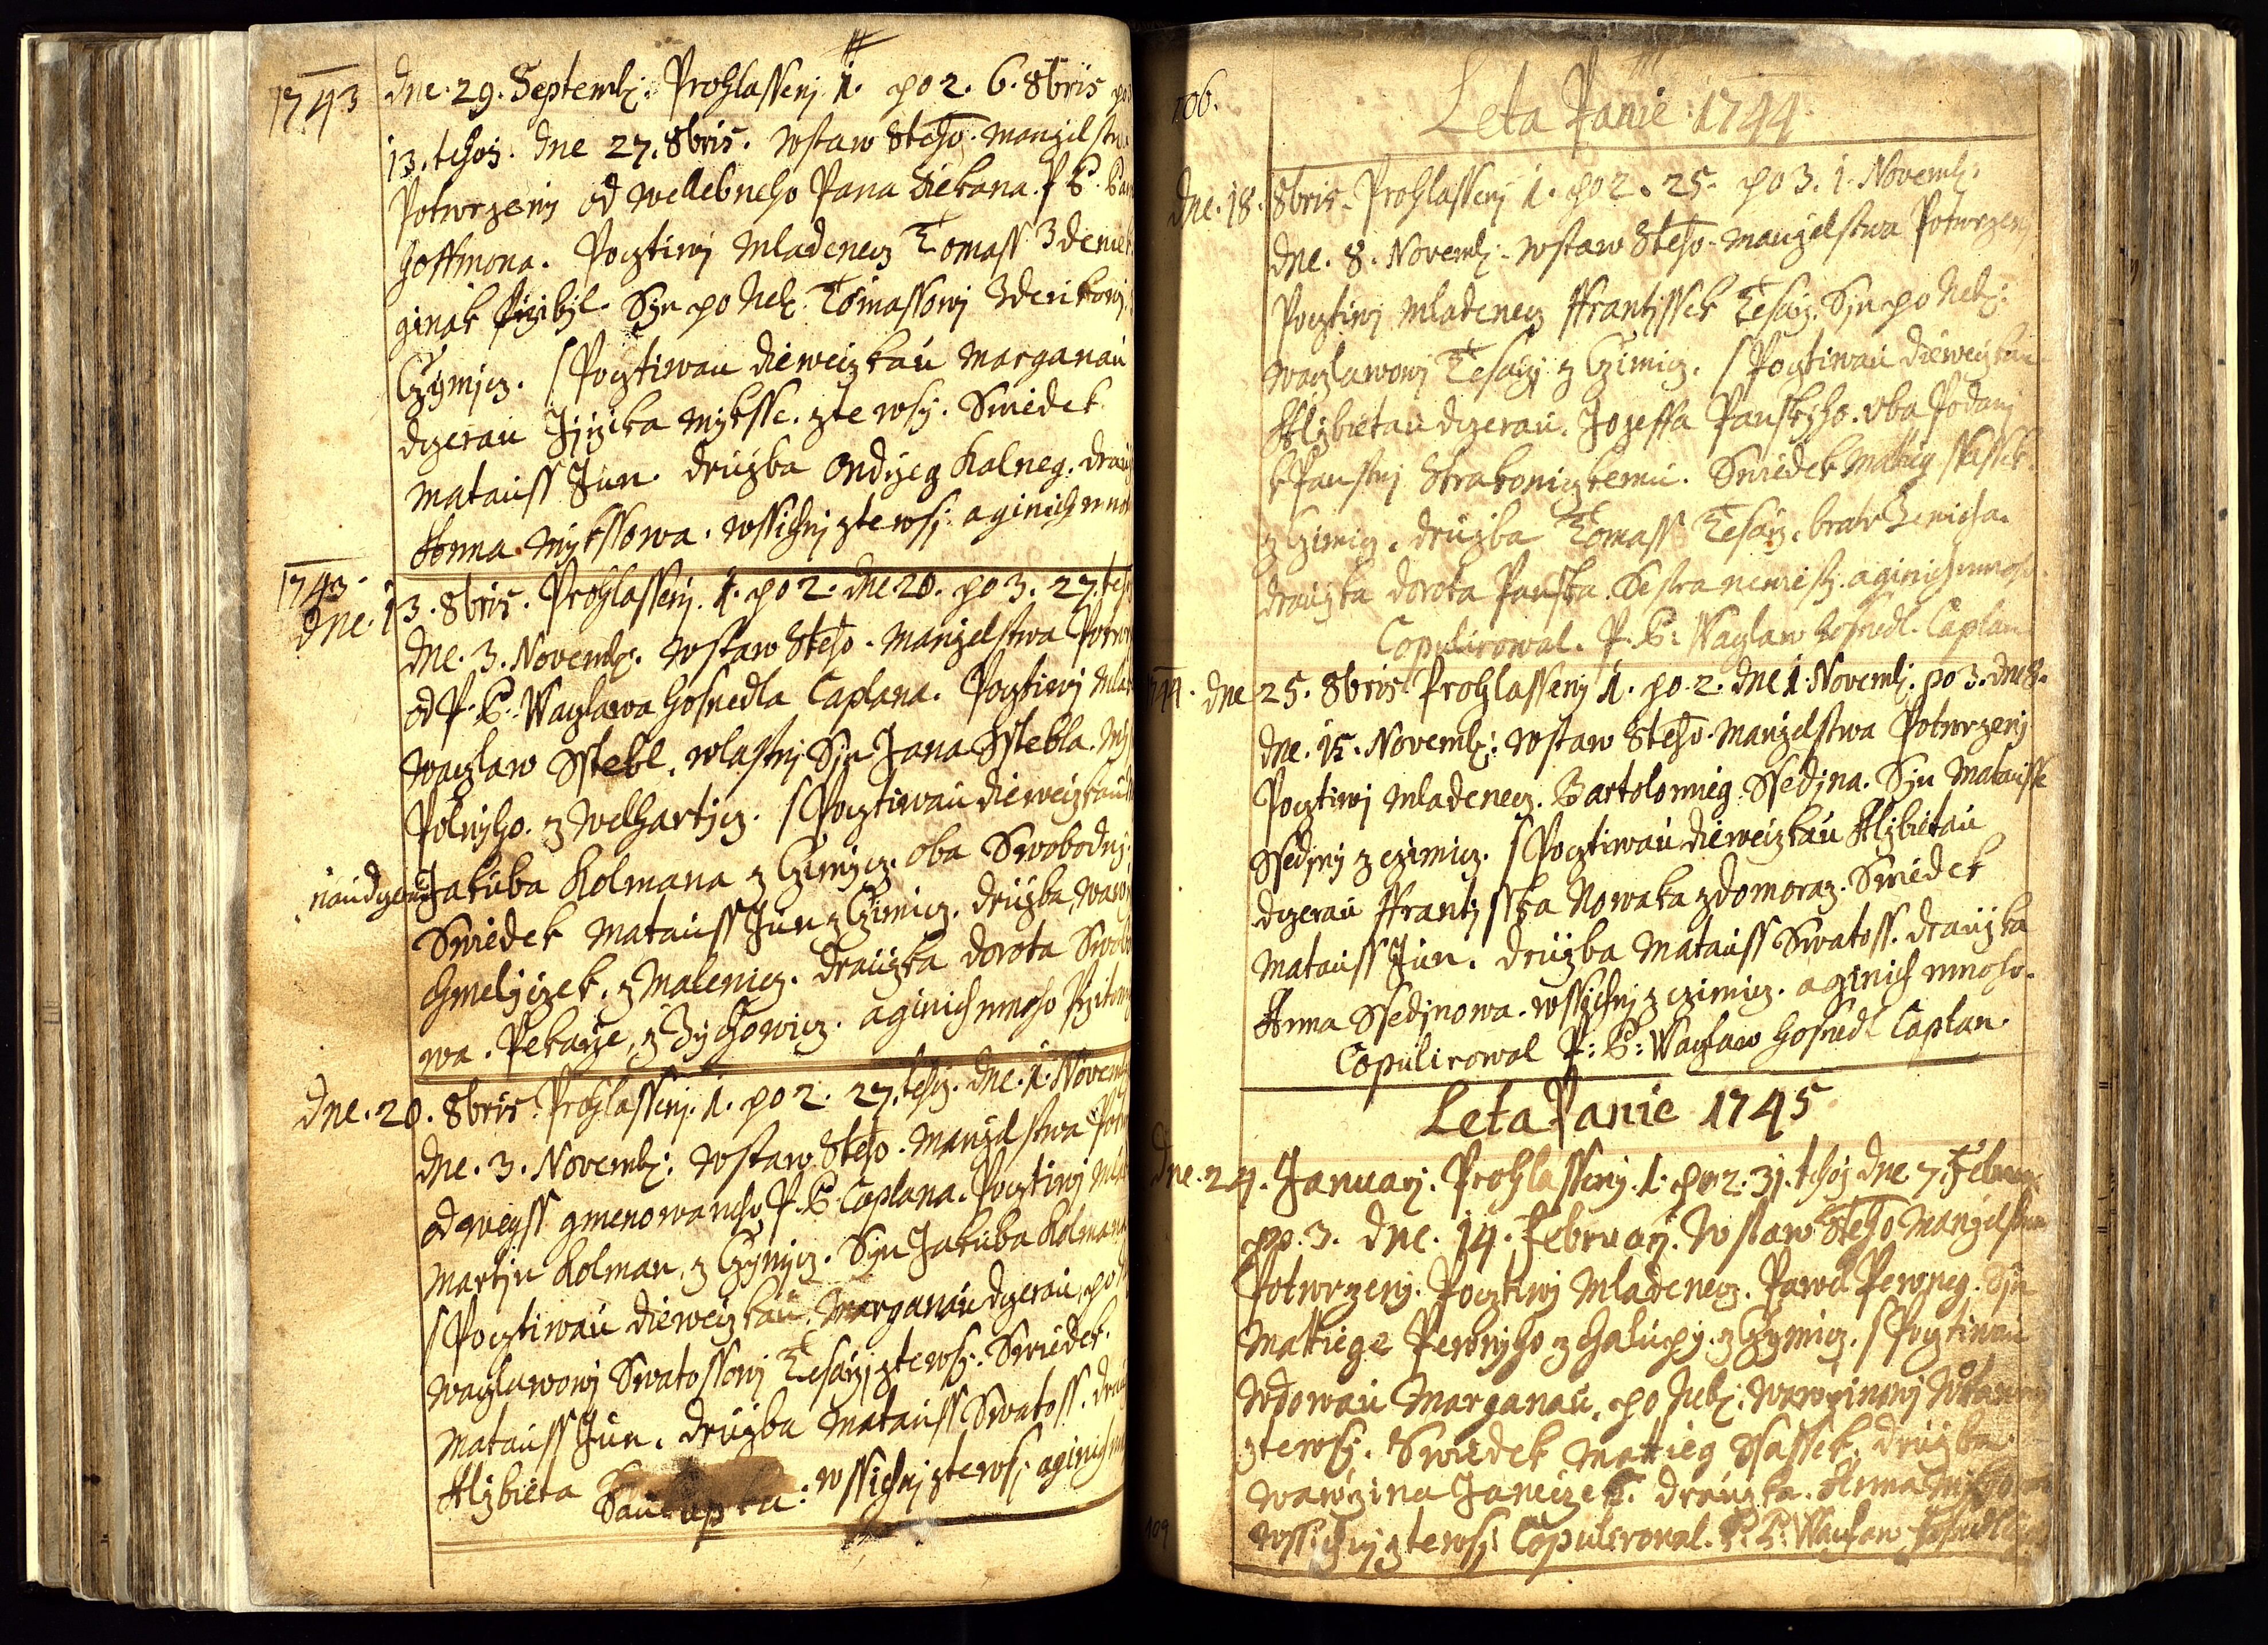 1743
dne. 29. Septemb: Prohlasseny 1. po 2. 6. 8bris
13. tehoz. dne 27. 8bris. wstaw Steho. manzelstw
Potwrzeny od wellebneho Pana Diekana. P. B.
Hoffmona. Pocztiwy Mladenecz Tomass Zdenek
ginak Przibyl. Syn po Neb: Tomassowy Zdenkowy
Czymicz. s Pocztiwau dieweczkau Marganau
dczerau Jyrzika Myksse. zte wsy. Swiedek
Matauss Jun. druzba Ondrzeg Kalneg. drau
Anna Mykssowa. wssichny zte wsy. aginich mno
1743
dne. 13. 8bris. Prohlasseny. 1. po 2. dne. 20. po 3. 27. teh
dne. 3. Novemb: wstaw Steho. Manzelstwa Potwr
od P. B. Waczlawa Hosnedla Caplana. Pocztiwy Mla
Waczlaw Sstebl. wlastny Syn Jana Sstebla. My
Polnyho. z Welhartycz. s Pocztiwau dieweczkau
nau dczerau Jakuba Kolmana z Czimycz. oba Swobodny.
Swiedek Matauss Jun z Czimicz. druzba, waw
Chmelyczek, z Malenicz. drauzka dorota Swob
wa. Pekarze, z Zychowicz. aginich mnoho Przitom
dne. 20. 8bris. Prohlasseny. 1. po 2. 27. tehz. dne. 1. Novemb
dne. 3. Novemb: wstaw Steho. Manzelstwa Potw
od weyss gmenowaneho P. B. Caplana. Pocztiwy Mla
Martyn Kolman, z Czymycz. Syn Jakuba Kolmana
s Pocztiwau dieweczkau Marganau dczerau, po
waczlawowy Swatossowy Tesarzy, zte wsy. Swiedek
Matauss Jun. druzba Matauss Swatoss. drau
Alzbieta
Saukupka: wssichny zte wsy aginich
106.
Leta Panie 1744
dne. 18. 8bris. Prohlasseny 1. po 2. 25. po 3. 1. Novemb:
dne. 8. Novemb: wstaw Steho. Manzelstwa Potwrzen
Pocztiwy Mladenecz Frantissek Tesarz. Syn po Neb:
Waczlawowy Tesarzy z Czimicz. s Pocztiwau dieweczkau
Alzbietau dczerau. Jozeffa Panskyho. oba Podany
k Panstwy Strakoniczkemu. Swiedek Matieg Ssassek.
z Czimicz. druzba Tomass Tesarz. bratr Zenicha.
drauzka dorota Panska. Sestra newiesty. aginich mnoho.
Copulirowal. P. B: Waczlaw Hosnedl. Caplan
1744. dne 25. 8bris Prohlasseny 1. po 2. dne 1. Novemb: po 3. dne 8.
dne. 15. Novemb: wstaw Steho. Manzelstwa Potwrzeny
Pocztiwy Mladenecz. Bartolomieg Ssedyna. Syn Matausse
Ssedyny z czimicz. s Pocztiwau dieweczkau Alzbietau
dczerau Frantysska Nowaka z domoraz. Swiedek
Matauss Jun. druzba Matauss Swatoss. drauzka
Anna Ssedynowa. wssychny z czimicz. aginich mnoho.
Copulirowal P: B: Waczlaw Hosnedl Caplan.
Leta Panie 1745
dne. 24. January. Prohlasseny. 1. po. 2. 31. tehoz dne 7. Februar
po. 3. dne. 14. February. wstaw Steho Manzelstwa
Potwrzeny. Pocztiwy Mladenecz. Pawel Perwneg. Syn
Mattiege Perwnyho z Chalupy. z Czymicz. s Pocztiwau
wdowau Marganau, po Neb: wawrzinowy
zte wsy. Swiedek Mattieg Ssassek. druzba
wawrzinu Janeczek. drauzka. Anna
wssichny zte wsy. Copulirowal. P. B: Waczlaw Hosnedl
109